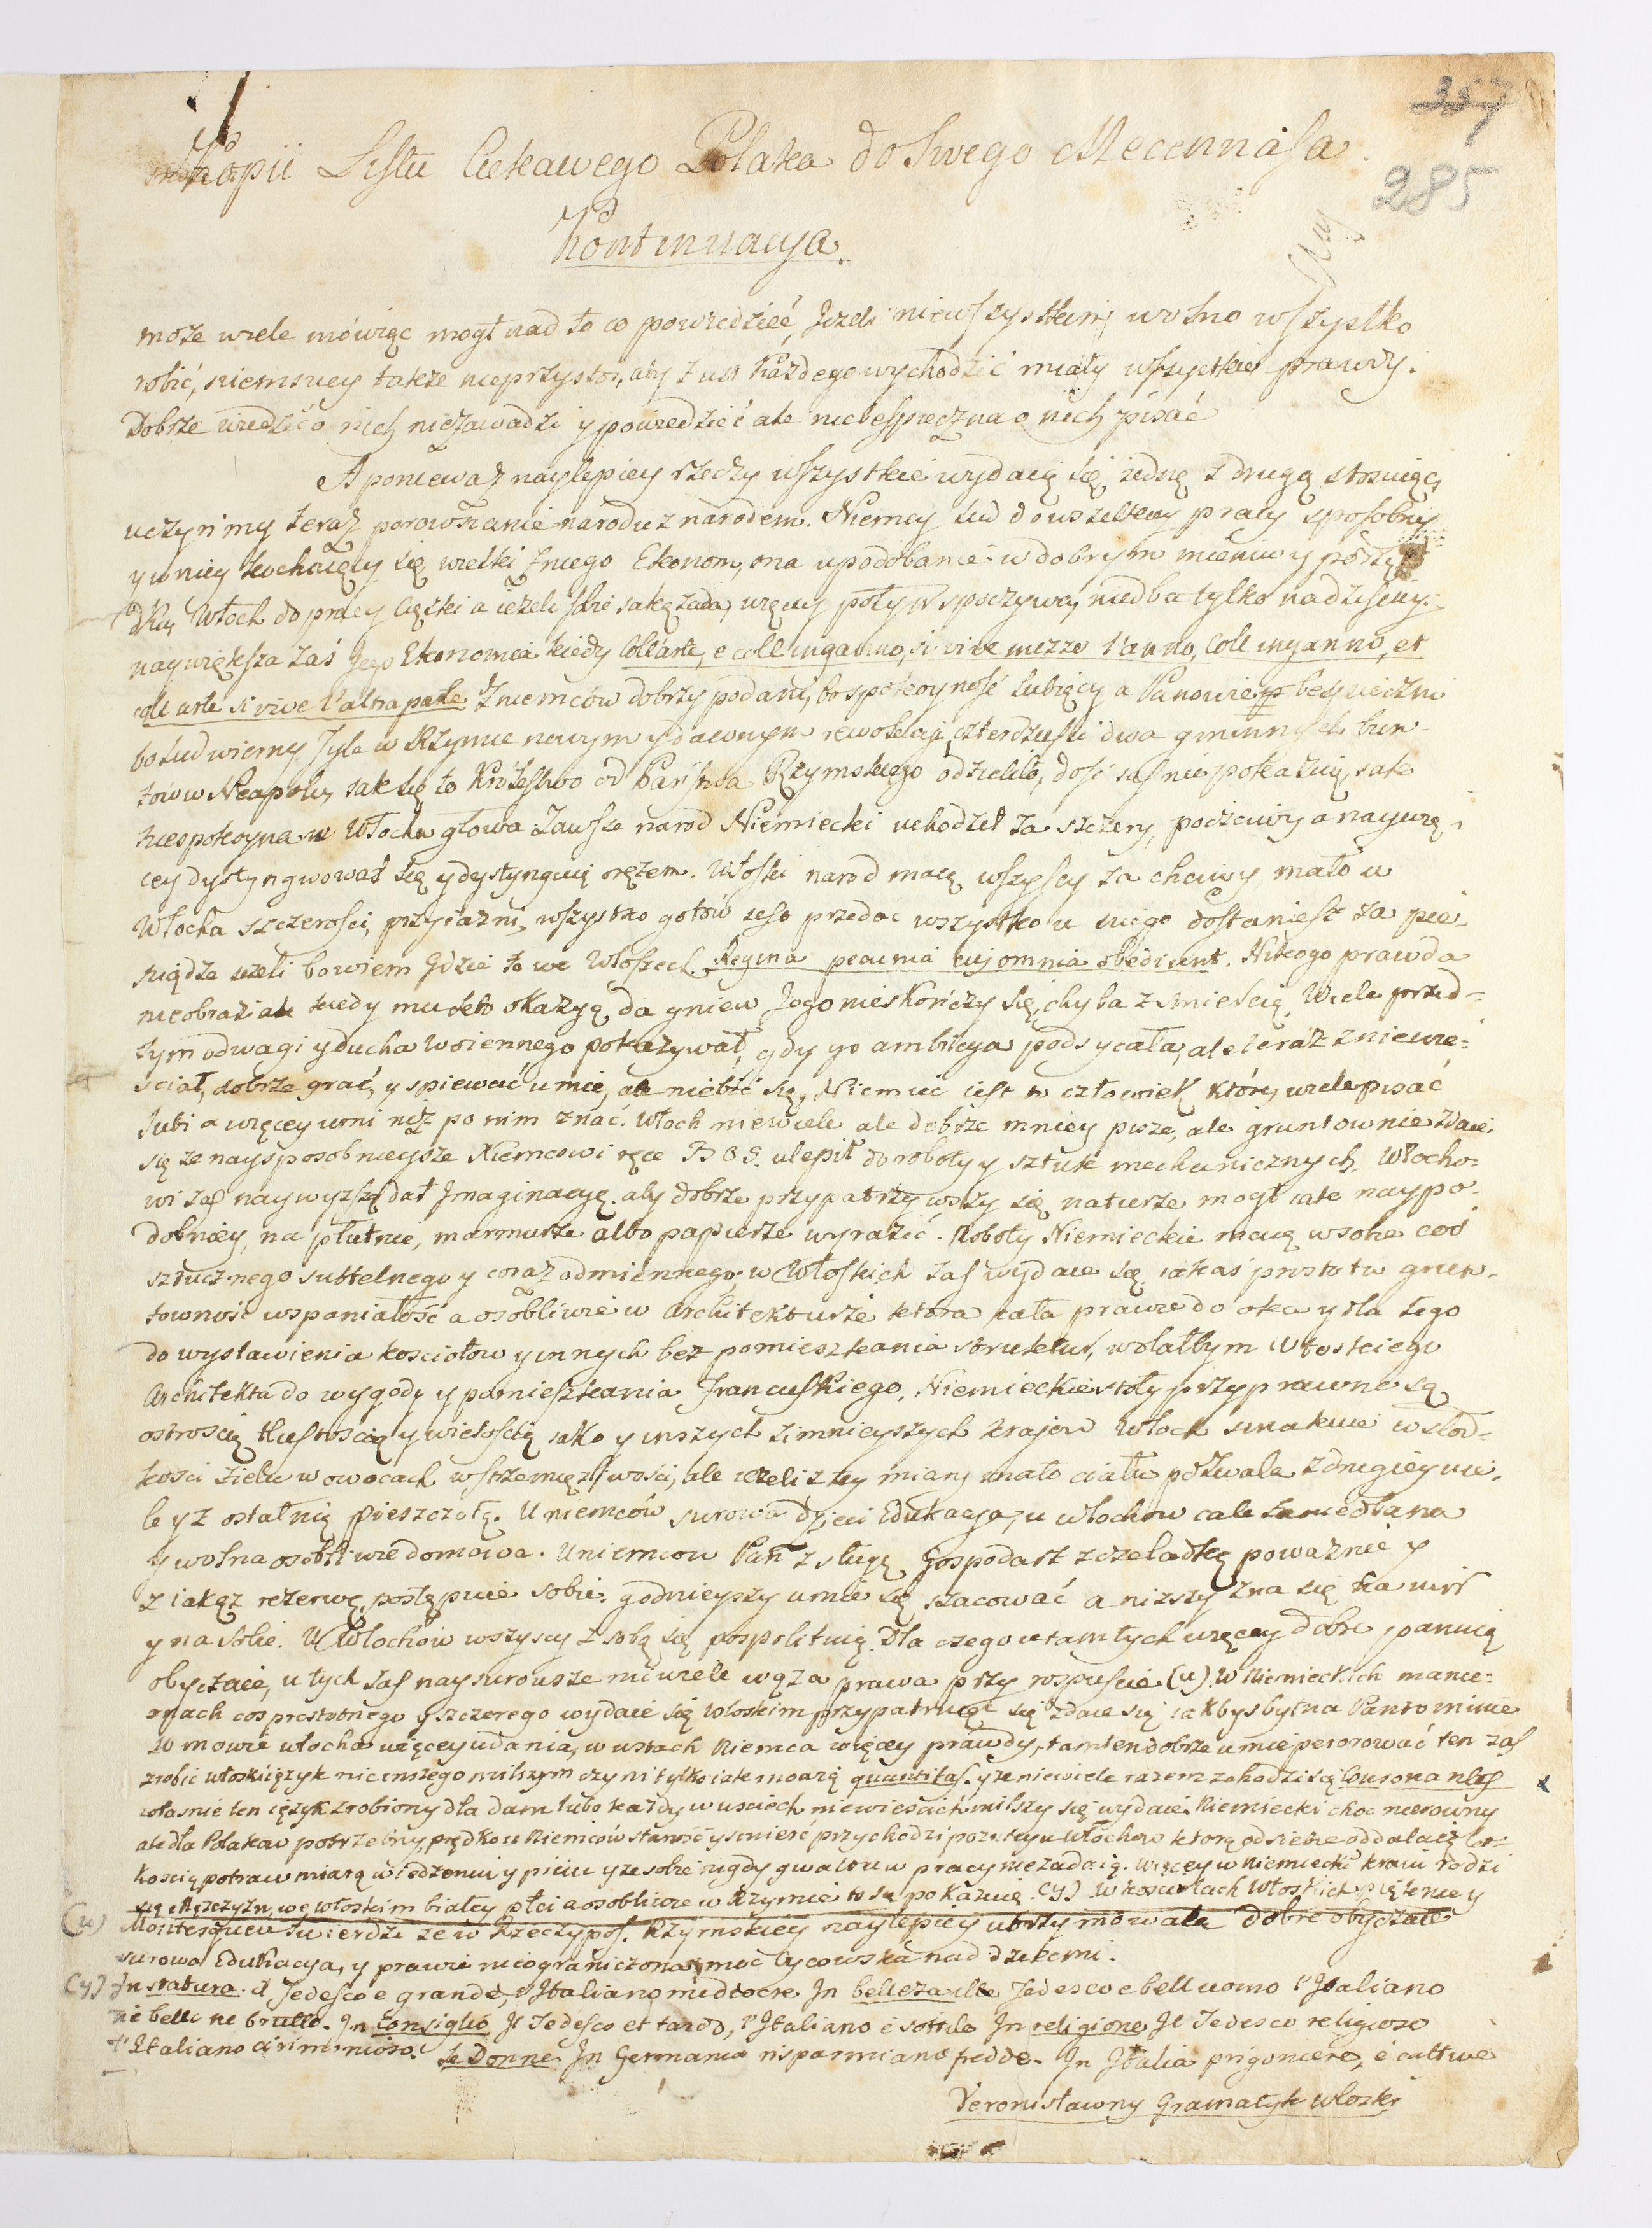 357
285
Kopii Listu Ciekawego Polaka do Swego Mecennasa.
Kontinuacya.
może wiele mówiąc mogł nad to co powiedzieć, Jezeli niewszystkim wolno wszystko
robić, niemniey także nieprzystoi, aby z ust Każdego wychodzić miały wszystkie prawdy.
Dobrze wiedzić o nich niezawadzi y powiedzieć ale niebespieczna o nich pisać
A ponieważ naylepiey rzeczy wszystkie wydaią się iedną z drugą stosuiąc,
uczyńmy teraz porownanie narodu z narodem. Niemcy lud do wszelkiey pracy sposobny
y w niey kochaiący się wielki z niego Ekonom, ma upodobanie w dobrym mieniu y
Włoch do pracy Ciężki a ieżeli sobie iaką zada, więcey poty spoczywa, niedba tylko na dzisieyszy
naywiększa zaś Jego Ekonomia kiedy Coll'arte, e coll'inganno, si vive mezzo l'anno, Coll inganno, et
coll arte si vive l'altra parte. Z niemców dobrzy poddani, bo spokoyność lubiący a Panowie bespieczni
bo lud wierny. Tyle w Rzymie nowym y dawnym rewolucyi, czterdzieści dwa gminnych bun-
tów w Neapolu, iak się to Krolestwo od Państwa Rzymskiego odzieliło, dość iasnie pokazuią, iak
niespokoyna w Włocha głowa Zawsze narod Niemiecki uchodził za szczery, poczciwy a naywię-
cey dystyngwował się y dystynguie orężem. Włoski narod maią wszyscy za chciwy, mało u
Włocha szczerości, przyiaźni, wszystko gotów iest przedać wszystko u niego dostaniesz za pie-
niądze ieżeli bowiem gdzie to we Włoszech Regina pecunia cui omnia obediunt. Nikogo prawda
nieobrazi ale kiedy mu kto okazyą da gniew Jego nieskończy się, chyba z śmiercią, Wiele przed-
tym odwagi y ducha woiennego pokazywał, gdy go ambicya podsycała, ale teraz zniewie-
ściał, dobrze grać, y spiewać umie, ale niebić się, Niemiec iest to człowiek który wiele pisać
lubi a więcey umi niż po nim znać. Włoch niewiele ale dobrze mniey pisze, ale gruntownie Zdaie
się że naysposobnieysze Niemcowi ręce BOG ulepił do roboty y sztuk mechanicznych, Włocho-
wi zaś naywyższą dał Jmaginacyę aby dobrze przypatrzywszy się naturze mogł iak naypo-
dobniey, na płutnie, marmurze albo papierze wyrazić. Roboty Niemieckie maią w sobie coś
sztucznego subtelnego y coraz odmiennego, w Włoskich zaś wydaie się iakaś prostota grun-
towność wspaniałość a osobliwie w Architekturze która cała prawie do oka y dla tego
do wystawienia kosciołow y innych bez pomieszkania struktur, wolałbym Włoskiego
Architekta do wygody y pomieszkania Francuskiego, Niemieckie stoły przyprawne są
ostroscią tłustoscią y wielością iako y inszych zimnieyszych kraiow Włoch smakuie w słod-
kosci ziela w owocach wstrzemięzliwości, ale ieżeli z tey miary mało ciału pozwala z drugiey wie-
le y z ostatnią pieszczotą. U niemców surowa dzieci Edukacya, u włochow cale zaniedbana
y wolna osobliwie domowa. U niemcow Pan z sługą Gospodarz z czeladką poważnie y
z iakąż rezerwą postępuie sobie. godnieyszy umie się szacować a niższy zna się na nim
y na sobie. U Włochów wszyscy z sobą się pospolituią. Dla czego u tamtych więcey dobre panuią
obyczaie, u tych zaś naysurowsze niewiele ważą prawa przy rospuście (u). W Niemieckich manie-
rach cos prostotnego y szczerego wydaie się Włoskim przypatruiąc się zdaie się iakbyś był na Pantomimie
W mowie włocha więcey udania, w ustach Niemca więcey prawdy, tamten dobrze umie perorować ten zaś
zrobic włoski ięzyk nic inszego milszym czyni tylko iak mowią quantitas. y że niewiele razem zchodzi się Consonantes
własnie ten ięzyk zrobiony dla dam lubo każdy w usciech niewieścich milszy się wydaie. Niemiecki choc nierowny
ale dla Polakow potrzebny, prędko u Niemców starość y smierć przychodzi pozniey u Włochow ktorą od siebie oddalaią lek-
kością potraw miarą w iedzeniu y piciu y że sobie nigdy gwałtu w pracy niezadaią. Więcey w Niemieckim kraiu rodzi
się Mężczyzn, we włoskim białey płci a osobliwie w Rzymie to się pokazuie (y) W kosciołach Włoskich piękney
(u) Montesquieu twierdzi ze w Rzeczypos. Rzymskiey naylepiey utrzymowała dobre obyczaie
surowa Edukacya, y prawie nieograniczona moc Oycowska nad dziećmi.
(y) In statura. il Tedesco e grande, l'Italiano mediocre In belleza il Tedesco e bell uomo l'Italiano
ne bello ne brutto. In Consiglio Il Tedesco et tardo, l'Italiano è sottile In religione Il Tedesco religioso
l'Italiano cirimonioso. Le Donne In Germania risparmiano fredde. In Italia prigoniere, è cattive
Veroni sławny Gramatyk włoski